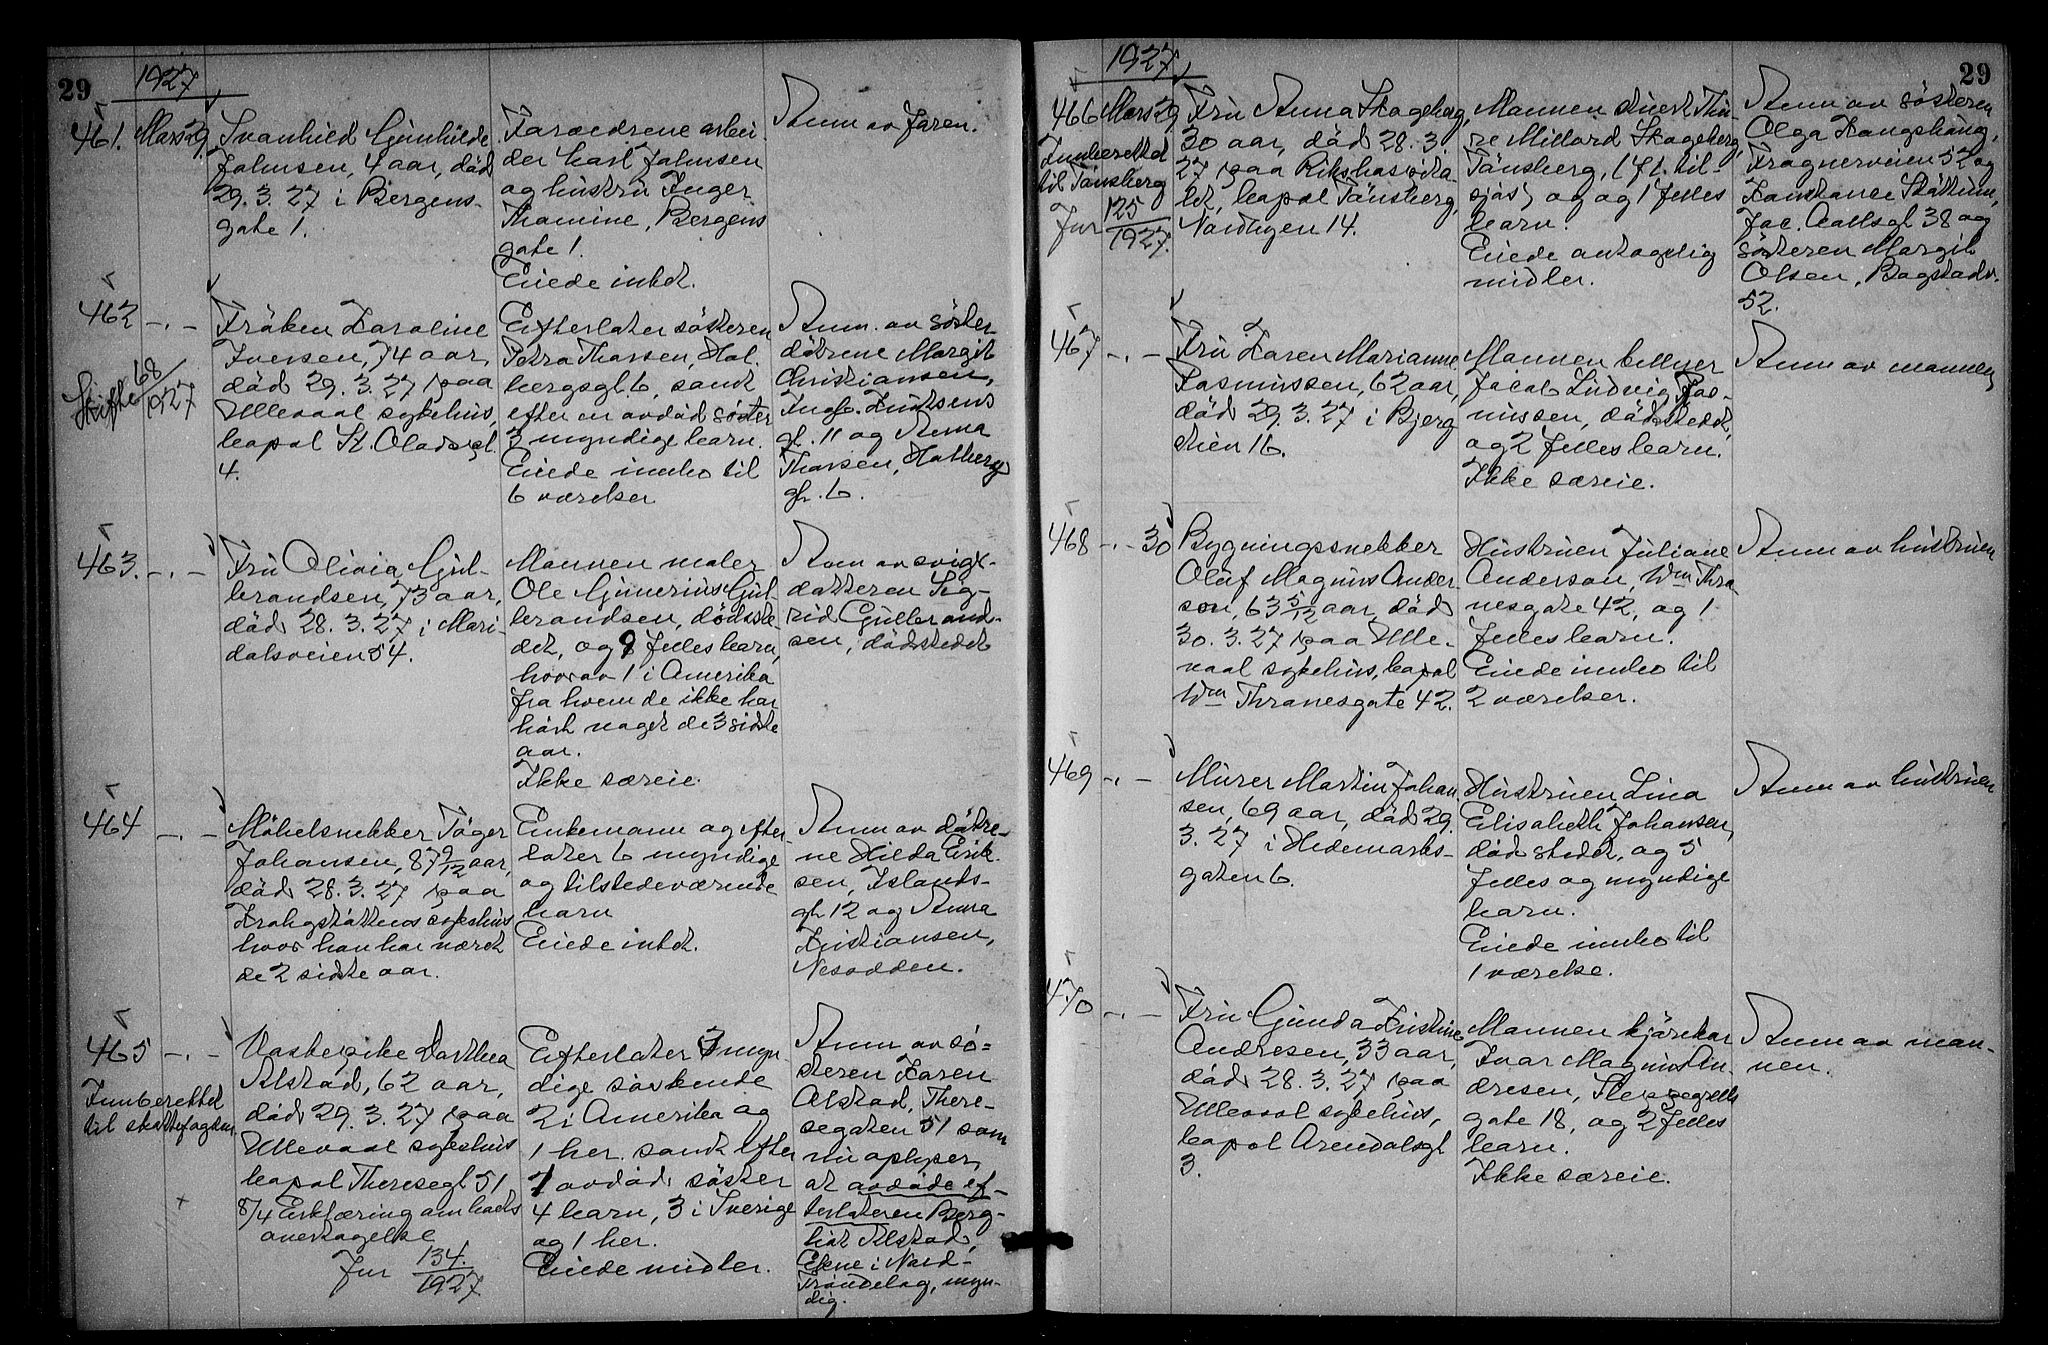 29
1927
461. Mars 29.
Svanhild Gunhilde
Johnsen, 4 aar, död
29. 3. 27 i Bergens-
gate 1.
Foreldrene arbei
der Karl Johnsen
og hustru Inger
Thomine, Bergens
gate 1.
Eiede intet.
Anm av faren.
462 -,-
Skifte 68/1927
Fröken Karoline
Iversen, 74 aar,
död 29. 3. 27 paa
Ullevaal sykehus,
bopæl St. Olavsgt.
4.
Efterlater søsteren
Petra Thorsen, Hol
bergsgt. 6, samt
efter en avdöd søster
3 myndige barn.
Eiede innbo til
6 værelser
Anm. av søster
døtrene Margit
Christiansen,
Ingb. Knutsens
gt. 11 og Anna
Thorsen, Holberg
gt. 6.
463. -,-
Fru Olivia Gul-
brandsen, 73 aar,
död 28. 3. 27 i Mari-
dalsveien 54.
Mannen maler
Ole Gunerius Gul-
brandsen, dødsste-
det, og 8 felles barn,
hvorav 1 i Amerika
fra hvem de ikke har
hört noget de 3 sidste
aar.
Ikke særeie.
Anm av sviger-
datteren Sig-
rid Gulbrand-
sen, dödsstedet
464 -,-
Möbelsnekker Töger
Johansen, 87 9/12 aar,
död 28. 3. 27 paa
Krohgstöttens sykehus
hvor han har været
de 2 sidste aar.
Enkemann og efter
later 6 myndige
og tilstedeværende
barn
Eiede intet.
Anm av døtre-
ne Hilda Erik-
sen, Islands-
gt 12 og Anna
Kristiansen,
Nesodden.
465 -,-
Innberettet
til skattefogden
Vaskepike Dorthea
Alstad, 62 aar,
död 29. 3. 27 paa
Ullevaal sykehus
bopæl Theresegt 51
8/4 Erklæring om boets
overtagelse
Jnr 134/1927
Efterlater 3 myn-
dige søskende
2 i Amerika og
1 her. samt efter
1 avdöd søster
4 barn, 3 i Sverige
og 1 her.
Eiede midler.
Anm av sø-
steren Karen
Alstad, There-
segaten 51 som
nu oplyser,
at avdöde ef-
terlateren Berg-
liot Alstad,
Ekne i Nord-
Tröndelag, myn-
dig.
29
1927
466 Mars 29
Innberettet
til Tönsberg
Jnr 125/1927.
Fru Anna Skogeberg,
30 aar, död 28. 3.
27 paa Rikshospita-
let, bopæl Tönsberg,
Nordbyen 14.
Mannen stuert Thu-
re Millard Skogeberg,
Tönsberg, (f. t. til-
sjös) og og 1 felles
barn.
Eiede antagelig
midler.
Anm av søsteren
Olga Kongshaug,
Frognerveien 52 og
Konstance
Jac. Aallsgt 38 og
søsteren Margit
Olsen, Bogstadv.
52.
467 -,-
Fru Karen Marianne
Rasmussen, 62 aar,
död 29. 3. 27 i Bjerg
stien 16.
Mannen bellmer
Jacob Ludvig Ras-
mussen, dödsstedet,
og 2 felles barn.
Ikke særeie.
Anm av mannen,
468 -,- 30
Bygningssnekker
Oluf Magnus Ander
son, 63 5/12 aar, död
30. 3. 27 paa Ulle-
vaal sykehus, bopæl
Wm Thranesgate 42.
Hustruen Juliane
Anderson, Wm Thra
nesgate 42, og 1
felles barn.
Eiede innbo til
2 værelser.
Anm av hustruen
469 -,-
Murer Martin Johan
sen, 69 aar, död 29.
3. 27 i Hedemarks-
gaten 6.
Hustruen Lina
Elisabeth Johansen,
dödsstedet, og 5
felles og myndige
barn.
Eiede innbo til
1 værelse.
Anm av hustruen
470 -,-
Fru Gunda Kristine
Andresen, 33 aar,
död 28. 3. 27 paa
Ullevaal sykehus,
bopæl Arendalsgt
3.
Mannen kjørekar
Ivar Magnus An-
dresen, Steppegrells
gate 18, og 2 felles
barn.
Ikke særeie.
Anm av man-
nen.